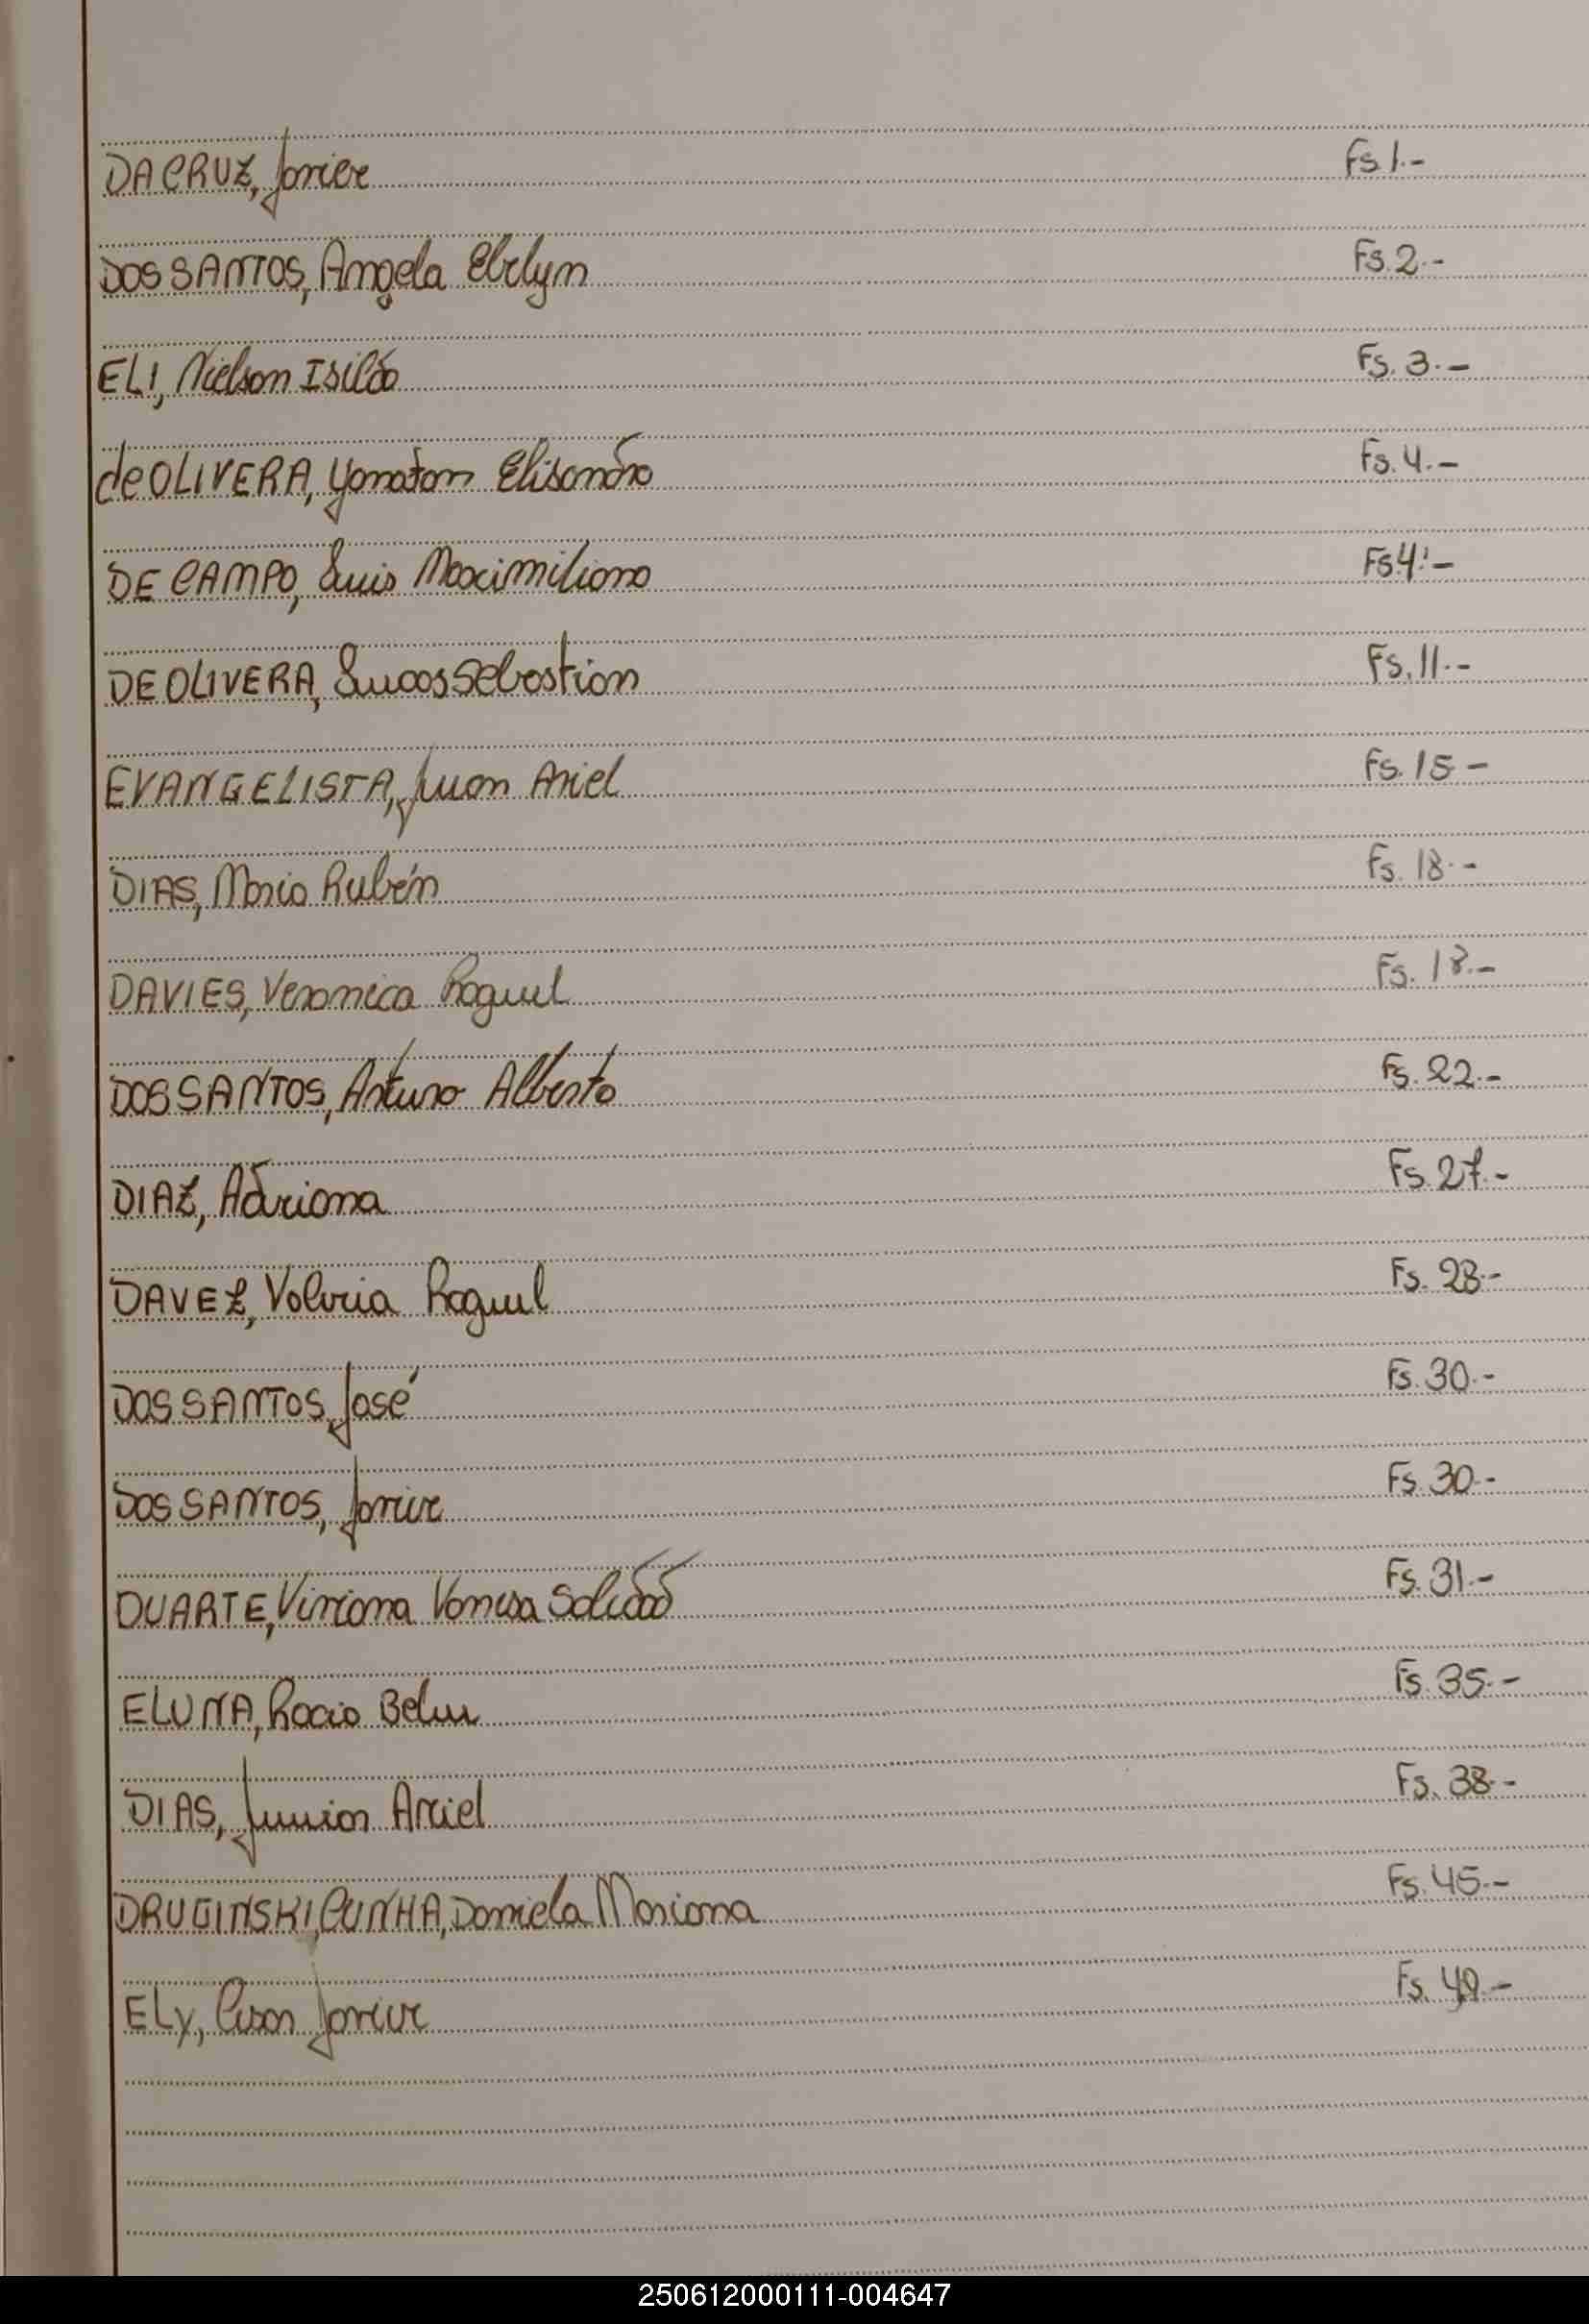 DA CRUZ, Javier Fs 1.-
DOS SANTOS, Angela Evelyn Fs. 2.-
ELI, Nielson Isildo Fs. 3.-
de OLIVERA, Yonatan Elisandro Fs. 4.-
DE CAMPO, Luis Maximiliano Fs 4.-
DE OLIVERA, Lucas Sebastian Fs. 11.-
EVANGELISTA, Juan Ariel Fs. 15-
DIAS, Mario Rubén Fs. 18.-
DAVIES, Veronica Raquel Fs. 18.-
DOS SANTOS, Arturo Alberto Fs. 22.-
DIAZ, Adriana Fs. 27.-
DAVEZ, Valeria Raquel Fs. 28.-
DOS SANTOS, José Fs. 30.-
DOS SANTOS, Javier Fs. 30.-
DUARTE, Viviana Vanesa Soledad Fs. 31.-
ELUNA, Rocio Belen Fs. 35.-
DIAS, Junior Ariel Fs. 38.-
DRUGINSKI, CUNHA, Daniela Mariana Fs. 45.-
ELY, Cesar Javier Fs. 49.-
250612000111-004647